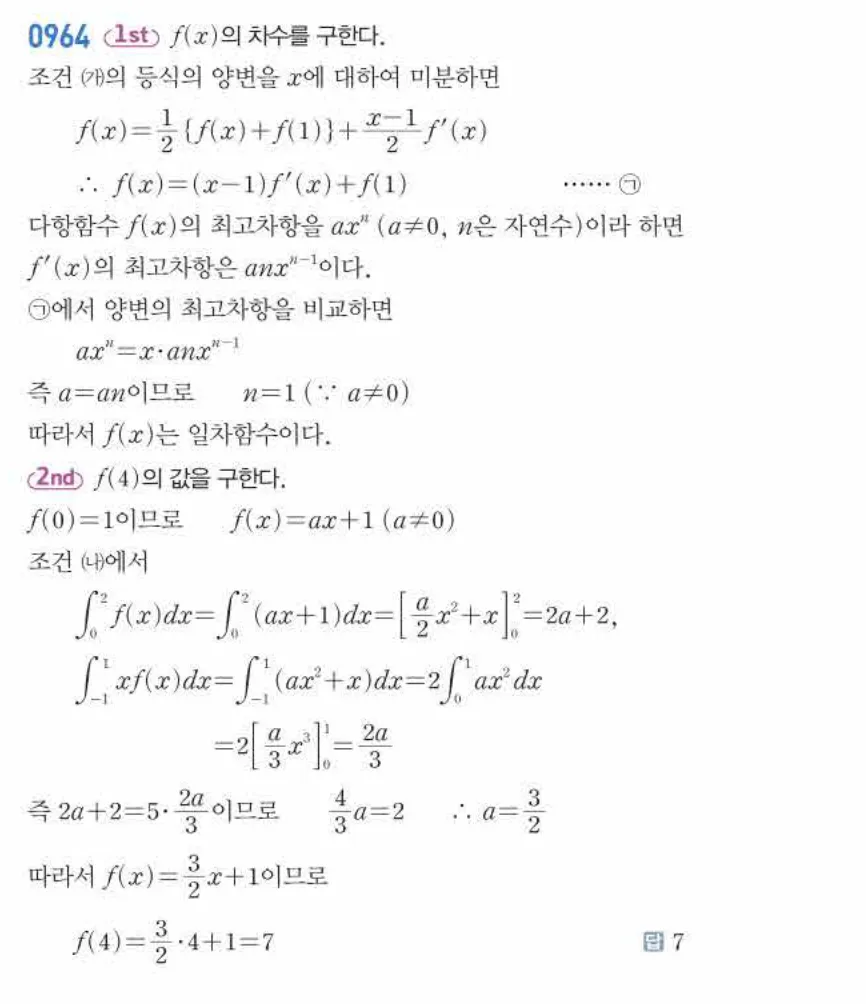 0964 1st f(x)의 차수를 구한다.
조건 ㈎의 등식의 양변을 x에 대하여 미분하면
f(x)=\frac{1}{2}{f(x)+f(1)}+\frac{x-1}{2}f'(x)
∴ f(x)=(x-1)f'(x)+f(1) …… ㉠
다항함수 f(x)의 최고차항을 axⁿ (a≠0, n은 자연수)이라 하면
f'(x)의 최고차항은 anxⁿ⁻¹이다.
㉠에서 양변의 최고차항을 비교하면
axⁿ=x·anxⁿ⁻¹
즉 a=an이므로 n=1 (∵ a≠0)
따라서 f(x)는 일차함수이다.
2nd f(4)의 값을 구한다.
f(0)=1이므로 f(x)=ax+1 (a≠0)
조건 ㈏에서
\int_0^2 f(x)dx=\int_0^2 (ax+1)dx=[\frac{a}{2}x²+x]_0^2=2a+2,
\int_{-1}^1 xf(x)dx=\int_{-1}^1 (ax²+x)dx=2\int_0^1 ax²dx
=2[\frac{a}{3}x³]_0^1=\frac{2a}{3}
즉 2a+2=5·\frac{2a}{3}이므로 \frac{4}{3}a=2 ∴ a=\frac{3}{2}
따라서 f(x)=\frac{3}{2}x+1이므로
f(4)=\frac{3}{2}·4+1=7 답 7